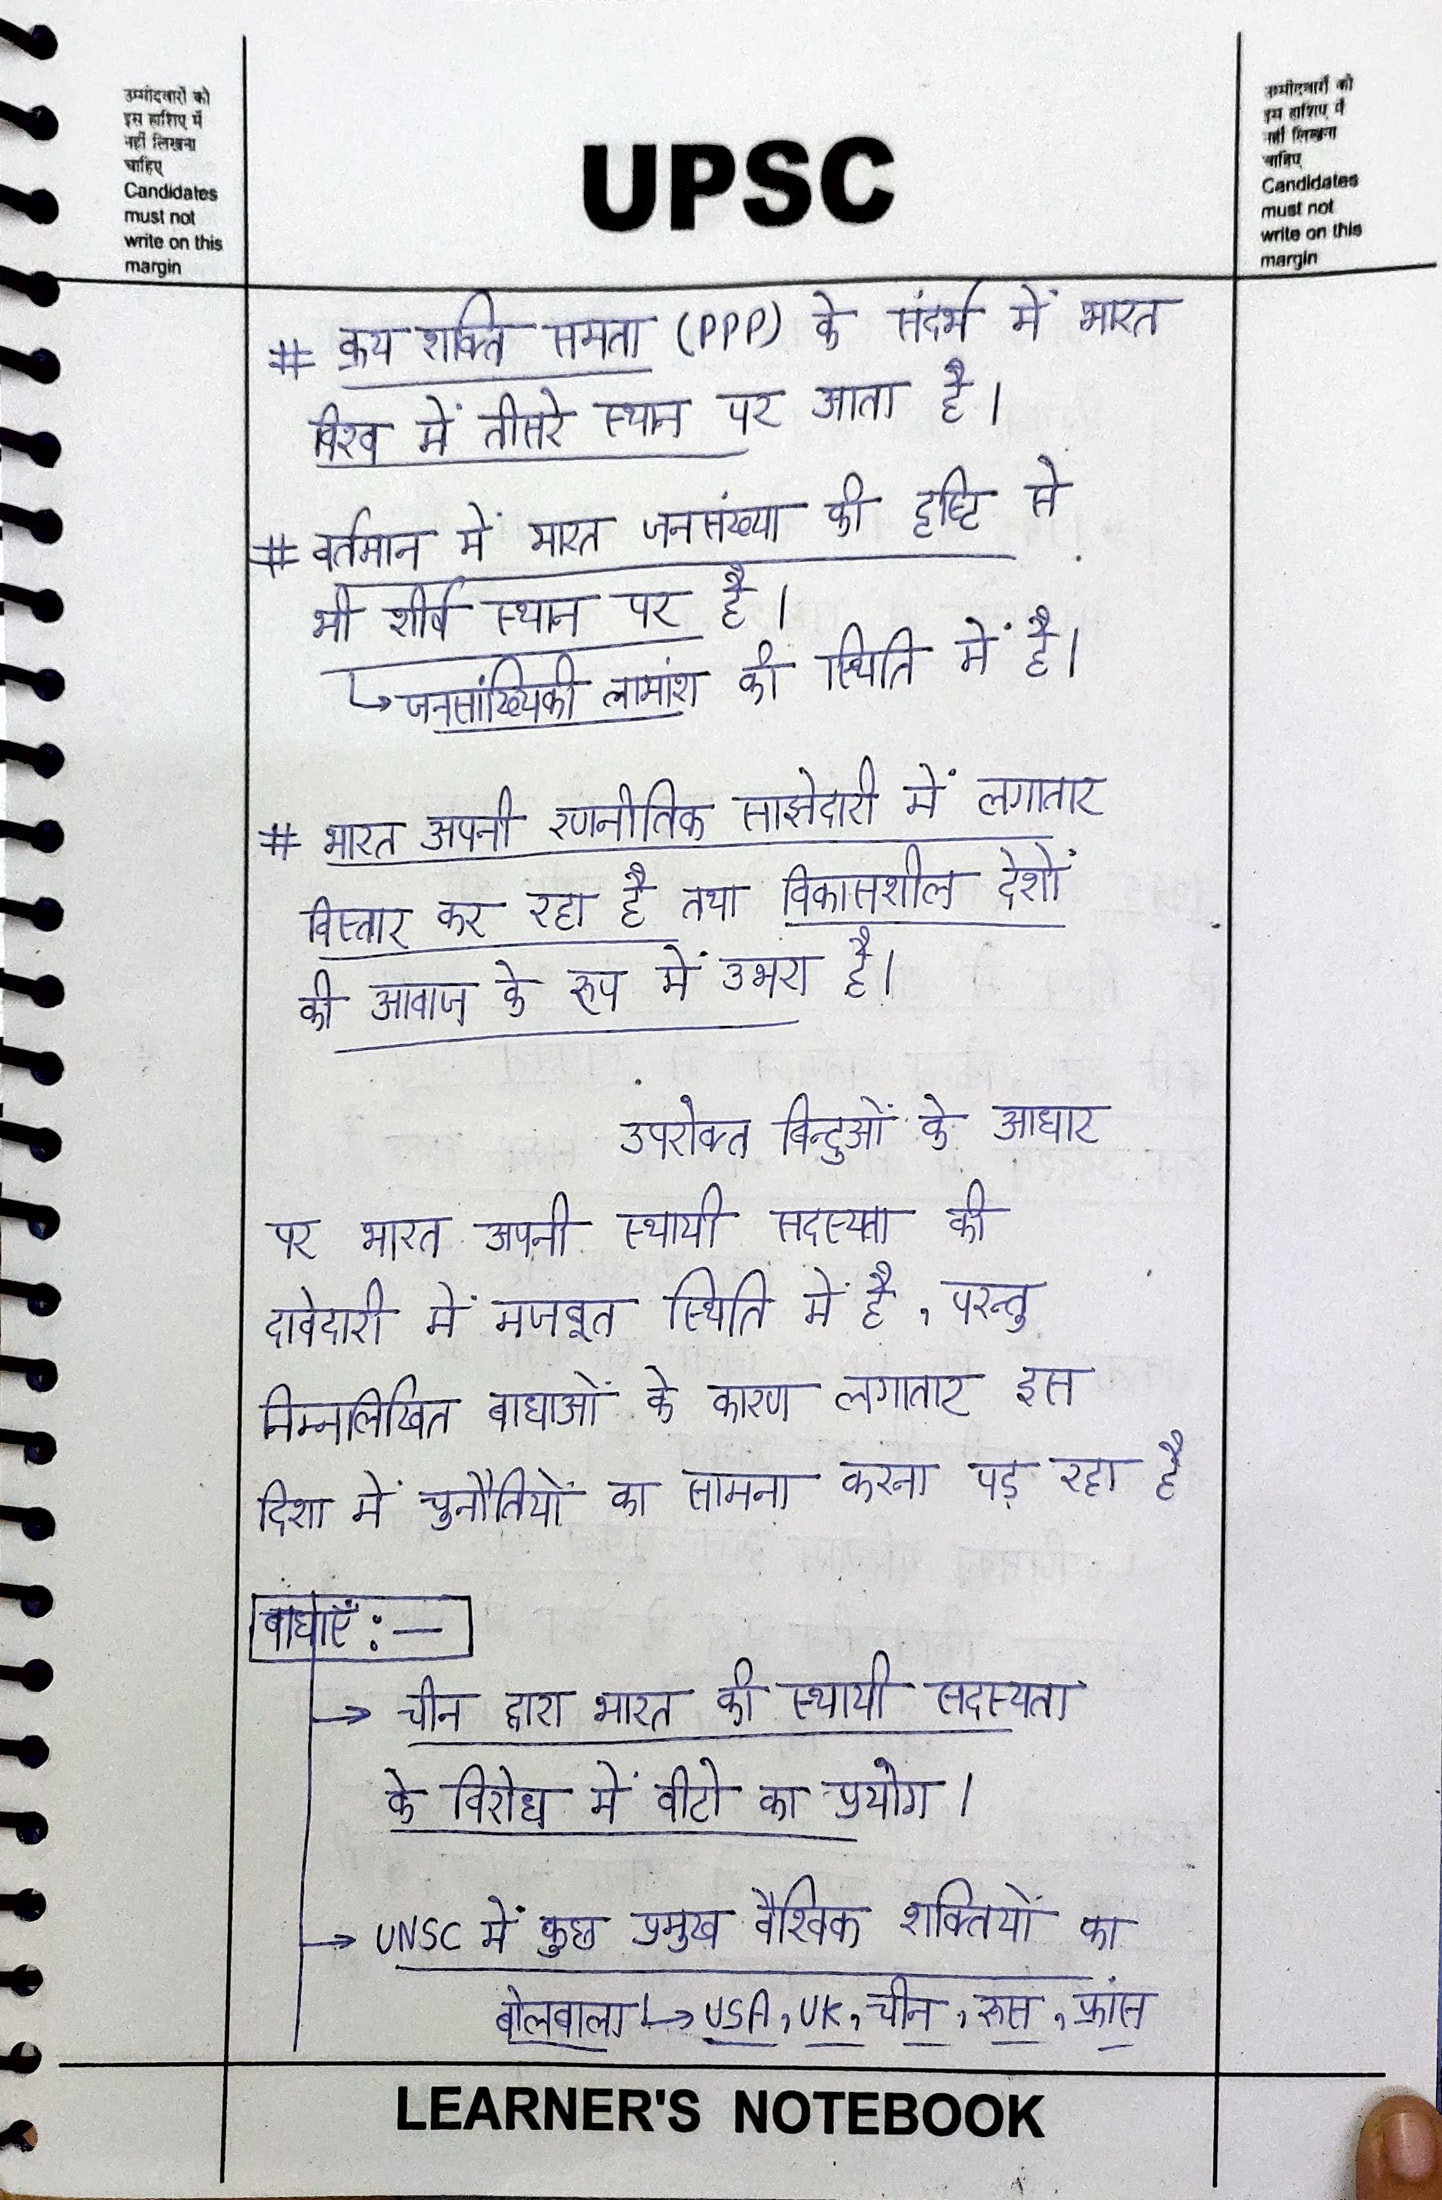 उम्मीदवारों को
इस हाशिए में
नहीं लिखना
चाहिए
Candidates
must not
write on this
margin
UPSC
उम्मीदवारों को
इस हाशिए में
नहीं लिखना
चाहिए
Candidates
must not
write on this
margin
# क्रय शक्ति समता (PPP) के संदर्भ में भारत
विश्व में तीसरे स्थान पर आता है।
# वर्तमान में भारत जनसंख्या की दृष्टि से
भी शीर्ष स्थान पर है।
↳ जनसांख्यिकी लाभांश की स्थिति में है।
# भारत अपनी रणनीतिक साझेदारी में लगातार
विस्तार कर रहा है तथा विकासशील देशों
की आवाज के रूप में उभरा है।
उपरोक्त बिन्दुओं के आधार
पर भारत अपनी स्थायी सदस्यता की
दावेदारी में मजबूत स्थिति में है, परन्तु
निम्नलिखित बाधाओं के कारण लगातार इस
दिशा में चुनौतियों का सामना करना पड़ रहा है
बाधाएँ :—
→ चीन द्वारा भारत की स्थायी सदस्यता
के विरोध में वीटो का प्रयोग।
→ UNSC में कुछ प्रमुख वैश्विक शक्तियों का
बोलबाला ↳ USA, UK, चीन, रूस, फ्रांस
LEARNER'S NOTEBOOK